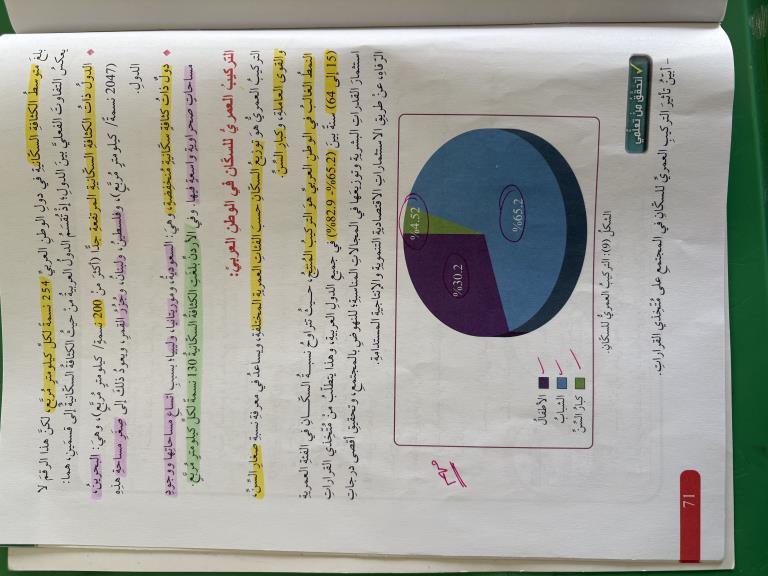 بلغ متوسط الكثافة السكانية في دول الوطن العربي 254 نسمة لكل كيلومتر مربع، لكن هذا الرقم لا
يعكس التفاوت الفعلي بين الدول؛ إذ تُقسم الدول العربية من حيث الكثافة السكانية إلى قسمين، هما:
♦ الدول ذات الكثافة السكانية المرتفعة جدًّا (أكثر من 200 نسمة/ كيلو متر مربع)، وهي: البحرين،
(2047 نسمة/ كيلومتر مربع)، وفلسطين، ولبنان، وجزر القمر، ويعود ذلك إلى صغر مساحة هذه
الدول.
♦ دول ذات كثافة سكانية منخفضة، وهي: السعودية، وموريتانيا، وليبيا؛ بسبب اتساع مساحاتها ووجود
مساحات صحراوية واسعة فيها. وفي الأردن بلغت الكثافة السكانية 130 نسمة لكل كيلو متر مربع.
التركيب العمري للسكان في الوطن العربي:
التركيب العمري هو توزيع السكان حسب الفئات العمرية المختلفة، ويساعد في معرفة نسبة صغار السن،
والقوى العاملة، وكبار السن.
النمط الغالب في الوطن العربي هو التركيب المنتج، حيث تتراوح نسبة السكان في الفئة العمرية
(15 إلى 64) سنة بين (65.2%- 82.9%) في جميع الدول العربية، وهذا يتطلب من متخذي القرارات
استثمار القدرات البشرية وتوزيعها في المجالات المناسبة؛ للنهوض بالمجتمع، وتحقيق أقصى درجات
الرفاه، عن طريق الاستثمارات الاقتصادية التنموية والإنتاجية المستدامة.
مهم
%4.52
%30.2
%65.2
الأطفال
الشباب
كبار السن
الشكل (9): التركيب العمري للسكان.
✓ أتحقق من تعلمي
- أبيّن تأثير التركيب العمري للسكان في المجتمع على متخذي القرارات.
71